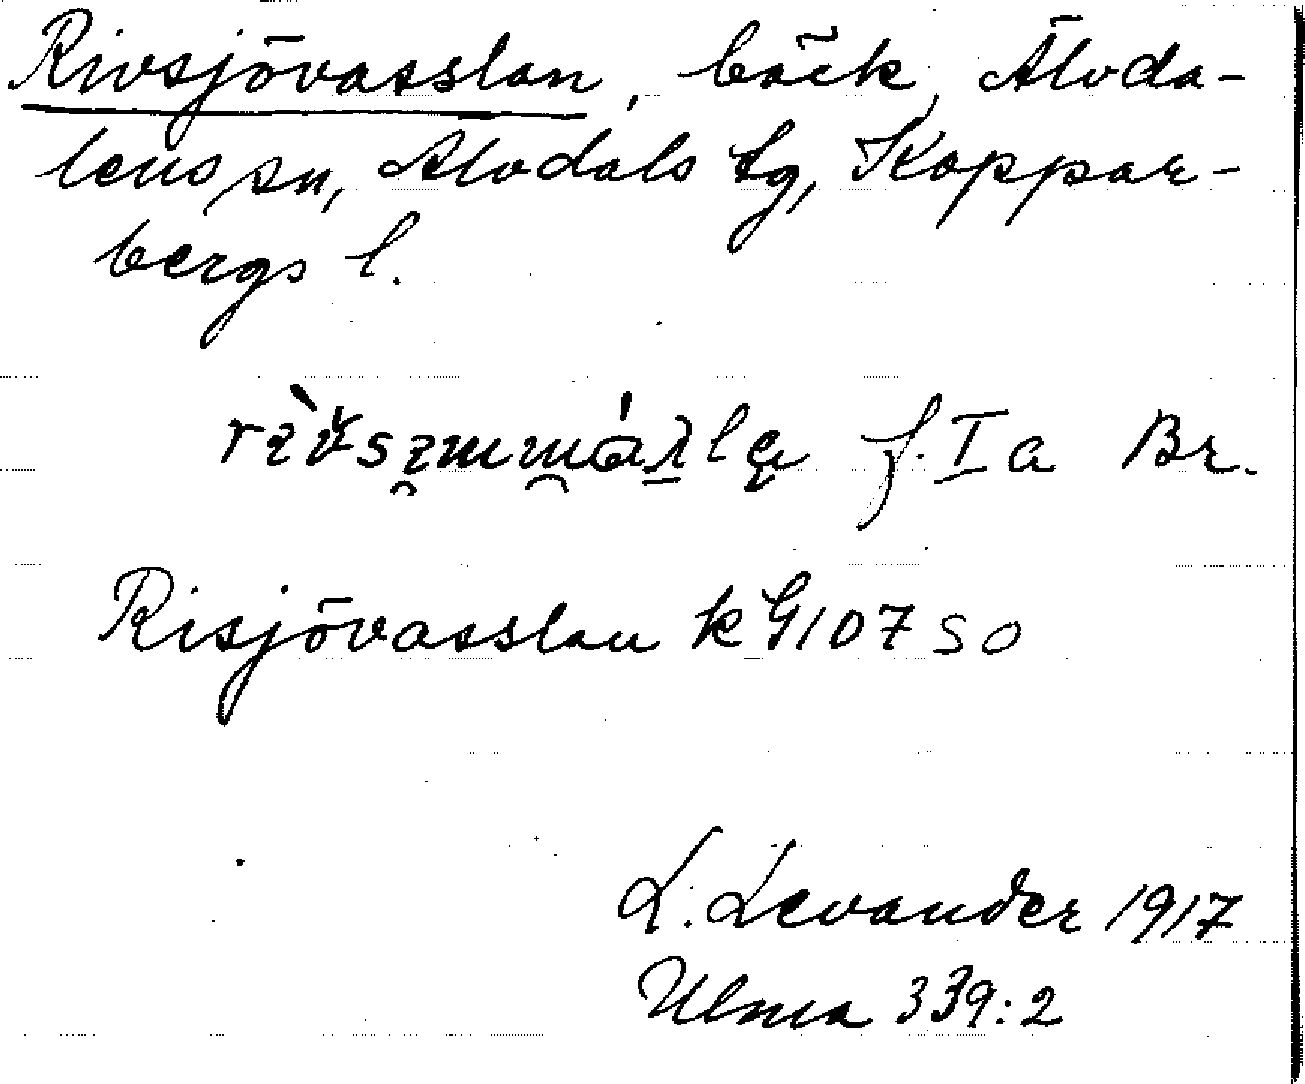 Rivsjövasslan, bäck, Älvda-
lens sn, Älvdals tg, Koppar-
bergs l.
f. I a Br.
Risjövasslan kG 107 SO
L. Levander 1917
Ulma 339:2